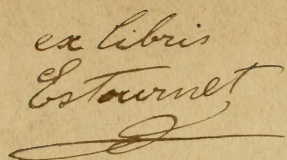 ex libris
Estournet